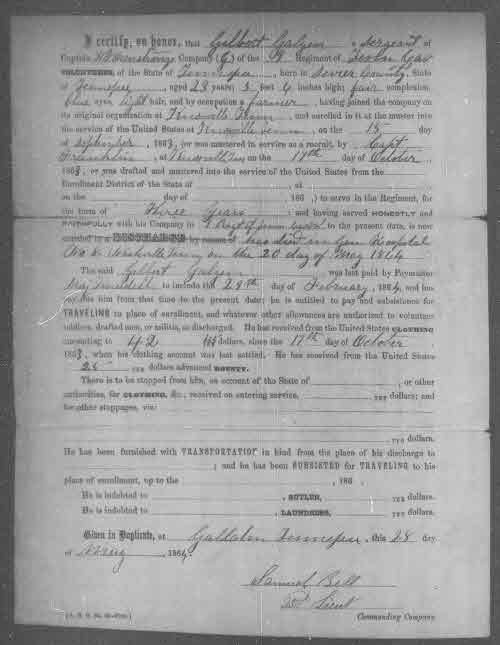 I certify, on honor, that Gilbert Galyen a Sergeant of
Captain Company (G) of the 9 Regiment of Tenn Cav
VOLUNTEERS, of the State of Tennessee, born in Sevier County, State
of Tennessee, aged 23 years; 5 feet 6 inches high; fair complexion,
blue eyes, light hair, and by occupation a farmer, having joined the company on
its original organization at Knoxville Tenn, and enrolled in it at the muster into
the service of the United States at Knoxville Tenn, on the 15 day
of September, 1863, (or was mustered in service as a recruit, by Capt
Franklin, at Knoxville Ten on the 17th day of October,
1863, or was drafted and mustered into the service of the United States from the
Enrollment District of the State of at
on the day of 186 ,) to serve in the Regiment, for
the term of Three Years; and having served HONESTLY and
FAITHFULLY with his Company in to the present date, is now
entitled to a DISCHARGE by reason of has died in Gen Hospital
No 8 Nashville Tenn on the 20 day of May 1864
The said Gilbert Galyen was last paid by Paymaster
Maj to include the 29th day of February, 1864, and has
pay due him from that time to the present date; he is entitled to pay and subsistence for
TRAVELING to place of enrollment, and whatever other allowances are authorized to volunteer
soldiers, drafted men, or militia, so discharged. He has received from the United States CLOTHING
amounting to 42 dollars, since the 17th day of October
1863, when his clothing account was last settled. He has received from the United States
25 100 dollars advanced BOUNTY.
There is to be stopped from him, on account of the State of , or other
authorities, for CLOTHING, &c., received on entering service, 100 dollars; and
for other stoppages, viz:
100 dollars.
He has been furnished with TRANSPORTATION in kind from the place of his discharge to
; and he has been SUBSISTED for TRAVELING to his
place of enrollment, up to the , 186 .
He is indebted to , SUTLER, 100 dollars.
He is indebted to , LAUNDRESS, 100 dollars.
Given in Duplicate, at Gallatin Tennessee, this 28 day
of May, 1864
Samuel Bell
Lieut
Commanding Company.